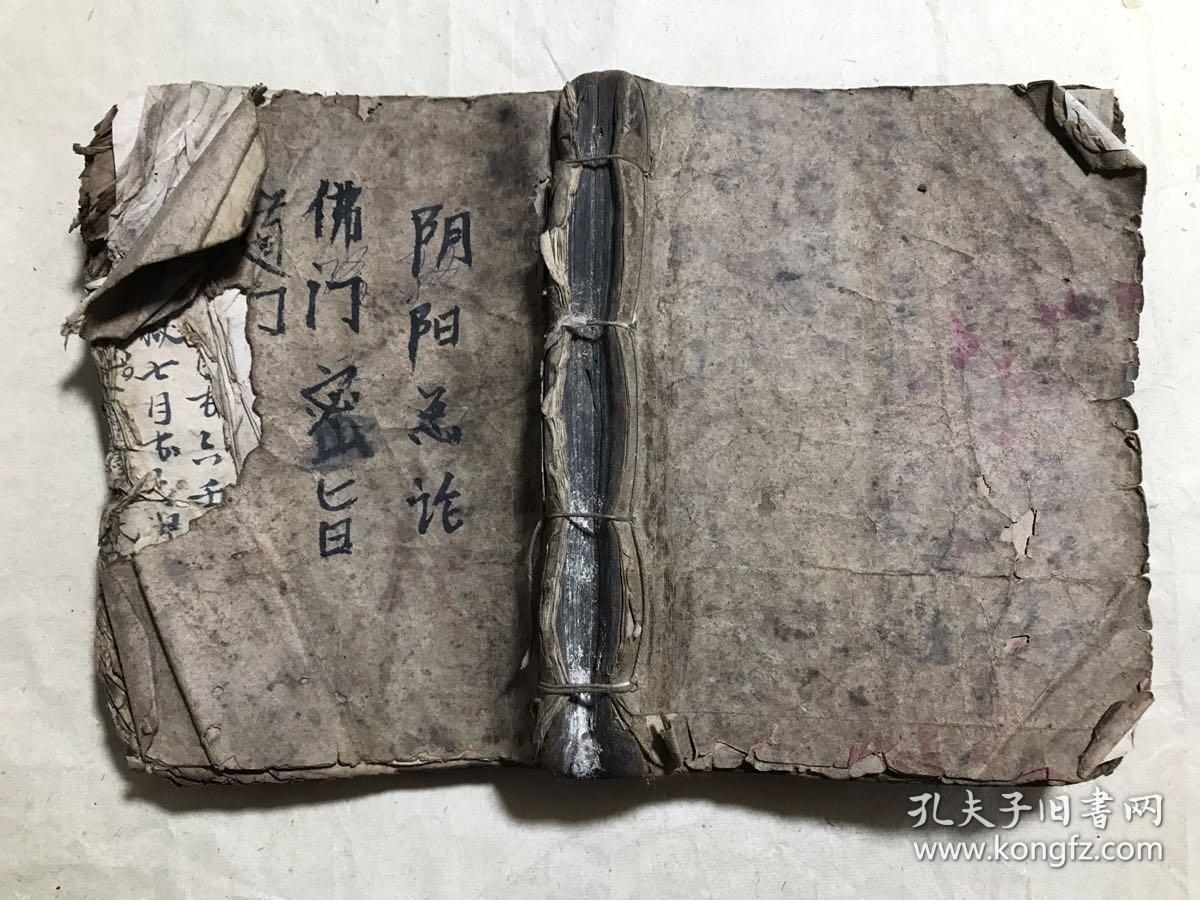 阴阳总论
佛门密旨
道门
七月
孔夫子旧書网
www.kongfz.com